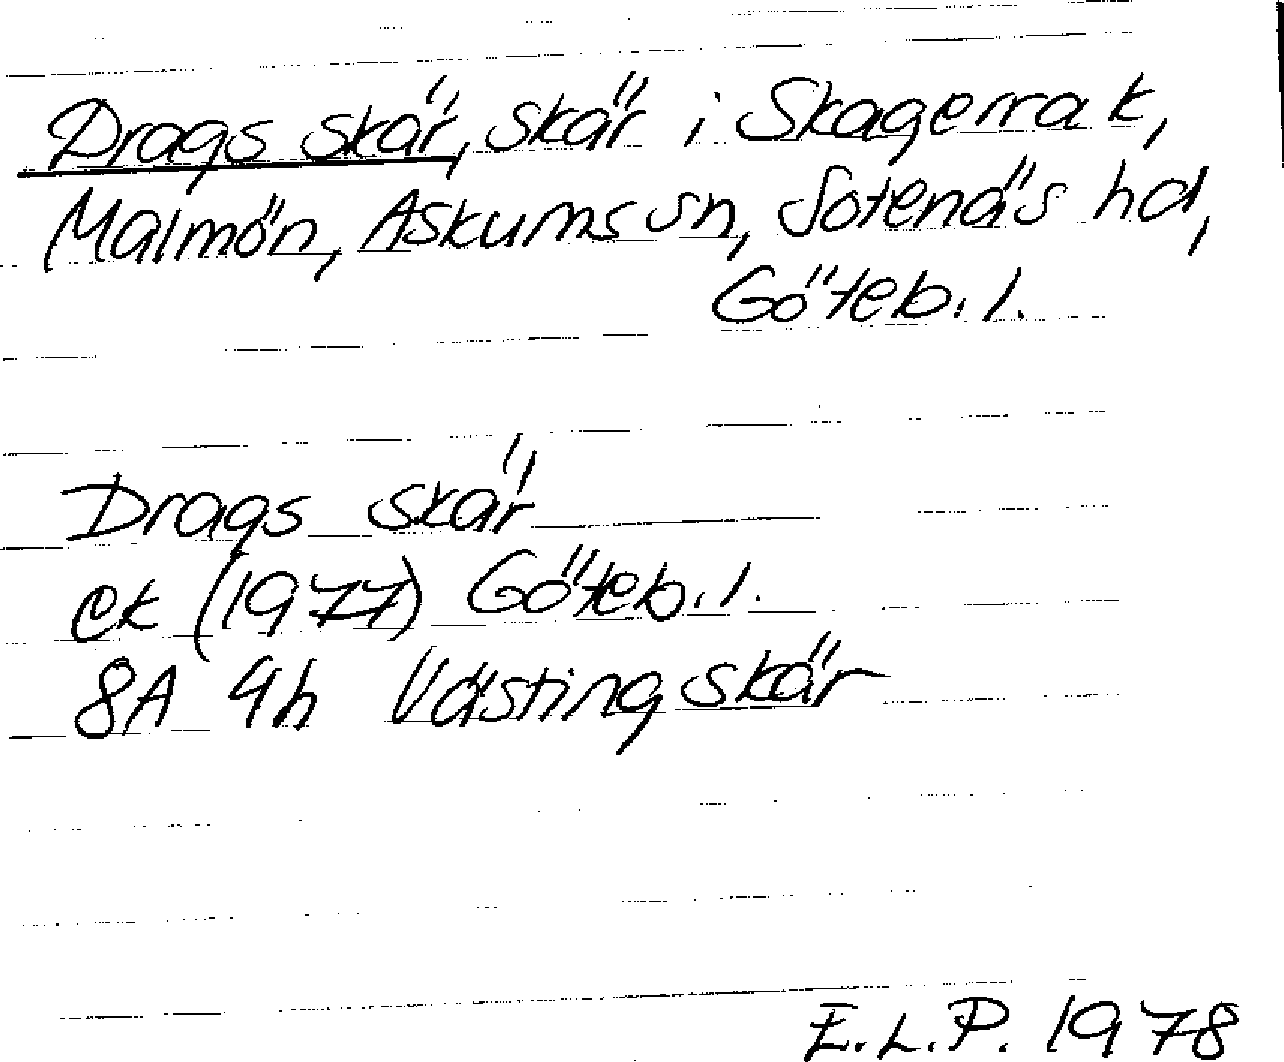 Drags skär, skär i Skagerrak,
Malmön, Askums sn, Sotenäs hd,
Göteb. l.
Drags skär
ek (1977) Göteb. l.
8A 9h Västing skär
E.L.P. 1978